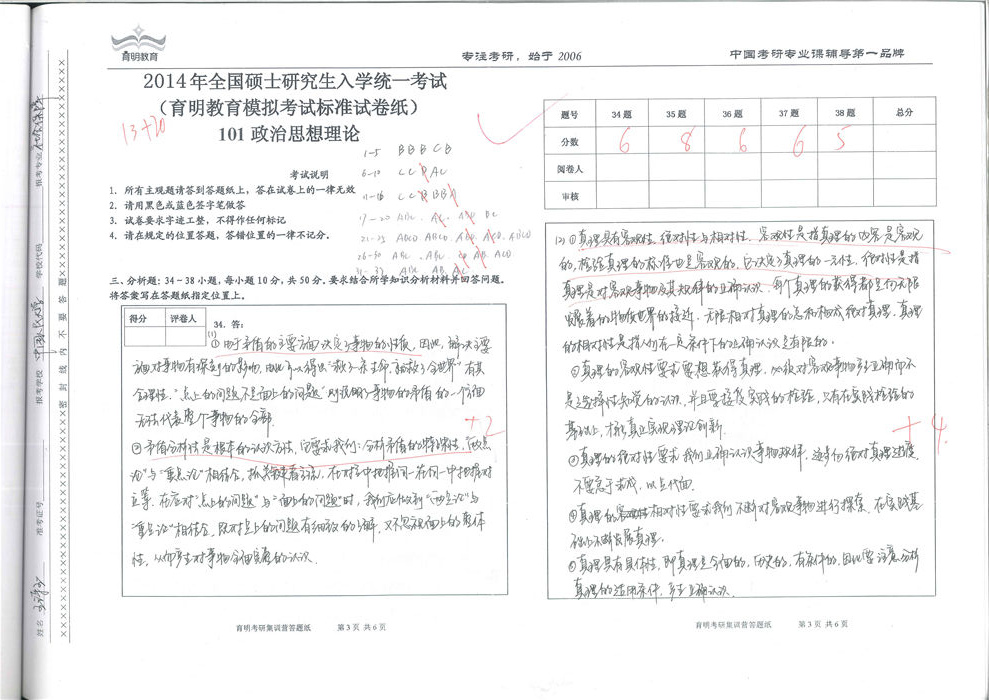 育明教育
专注考研，始于 2006
中国考研专业课辅导第一品牌
2014年全国硕士研究生入学统一考试
（育明教育模拟考试标准试卷纸）
101 政治思想理论
13+20
考试说明
1. 所有主观题请答到答题纸上，答在试卷上的一律无效
2. 请用黑色或蓝色签字笔做答
3. 试卷要求字迹工整，不得作任何标记
4. 请在规定的位置答题，答错位置的一律不记分。
1-5 BBBCB
6-10 CCBAC
11-16 CCBBBA
三、分析题：34－38小题，每小题10分，共50分。要求结合所学知识分析材料并回答问题。
将答案写在答题纸指定位置上。
得分 评卷人
34. 答：
(1)
①由于矛盾的主要方面决定了事物的性质，因此，解决主要
方面对事物有深刻的影响，因此可以得出“救了一条生命，拯救了全世界”有其
合理性。“点上的问题不是面上的问题”对说明了事物的矛盾的一个方面
无法代表整个事物的全部
②矛盾分析法是根本的认识方法，它要求我们：分析矛盾的特殊性，“两点
论”与“重点论”相结合，抓关键看主流，在对立中把握同一，在同一中把握对
立等。在应对“点上的问题”与“面上的问题”时，我们应做到“两点论”与
“重点论”相结合，既对点上的问题有细致的了解，又不忽视面上的整体
性，从而产生对事物全面完整的认识。
+2
育明考研集训营答题纸 第 3 页 共 6 页
题号 34题 35题 36题 37题 38题 总分
分数 6 8 6 6 5
阅卷人
审核
(2) ①真理具有客观性、绝对性与相对性。客观性是指真理的内容是客观
的，检验真理的标准也是客观的，它决定了真理的一元性。绝对性是指
真理是对客观事物及其规律的正确认识，每个真理的获得都是向无限
发展着的物质世界的接近，无限相对真理的总和构成绝对真理，真理
的相对性是指人们在一定条件下的正确认识是有限的。
②真理的客观性要求要想获得真理，必须对客观事物予以正确而不
是选择性知觉的认识，并且要接受实践的检验，只有在实践检验的
基础上，才能真正实现理论创新。
③真理的绝对性要求我们正确认识事物规律，逐步向绝对真理进度
不要急于求成，以点代面。
④真理的相对性要求我们不断对客观事物进行探索，在实践基
础上不断发展真理。
⑤真理具有具体性，即真理是全面的，历史的，有条件的，因此要注意分析
真理的适用条件，予以正确认识。
+4
育明考研集训营答题纸 第 5 页 共 6 页
报考专业
学校代码
报考学校
准考证号
姓名
密封线内不要答题